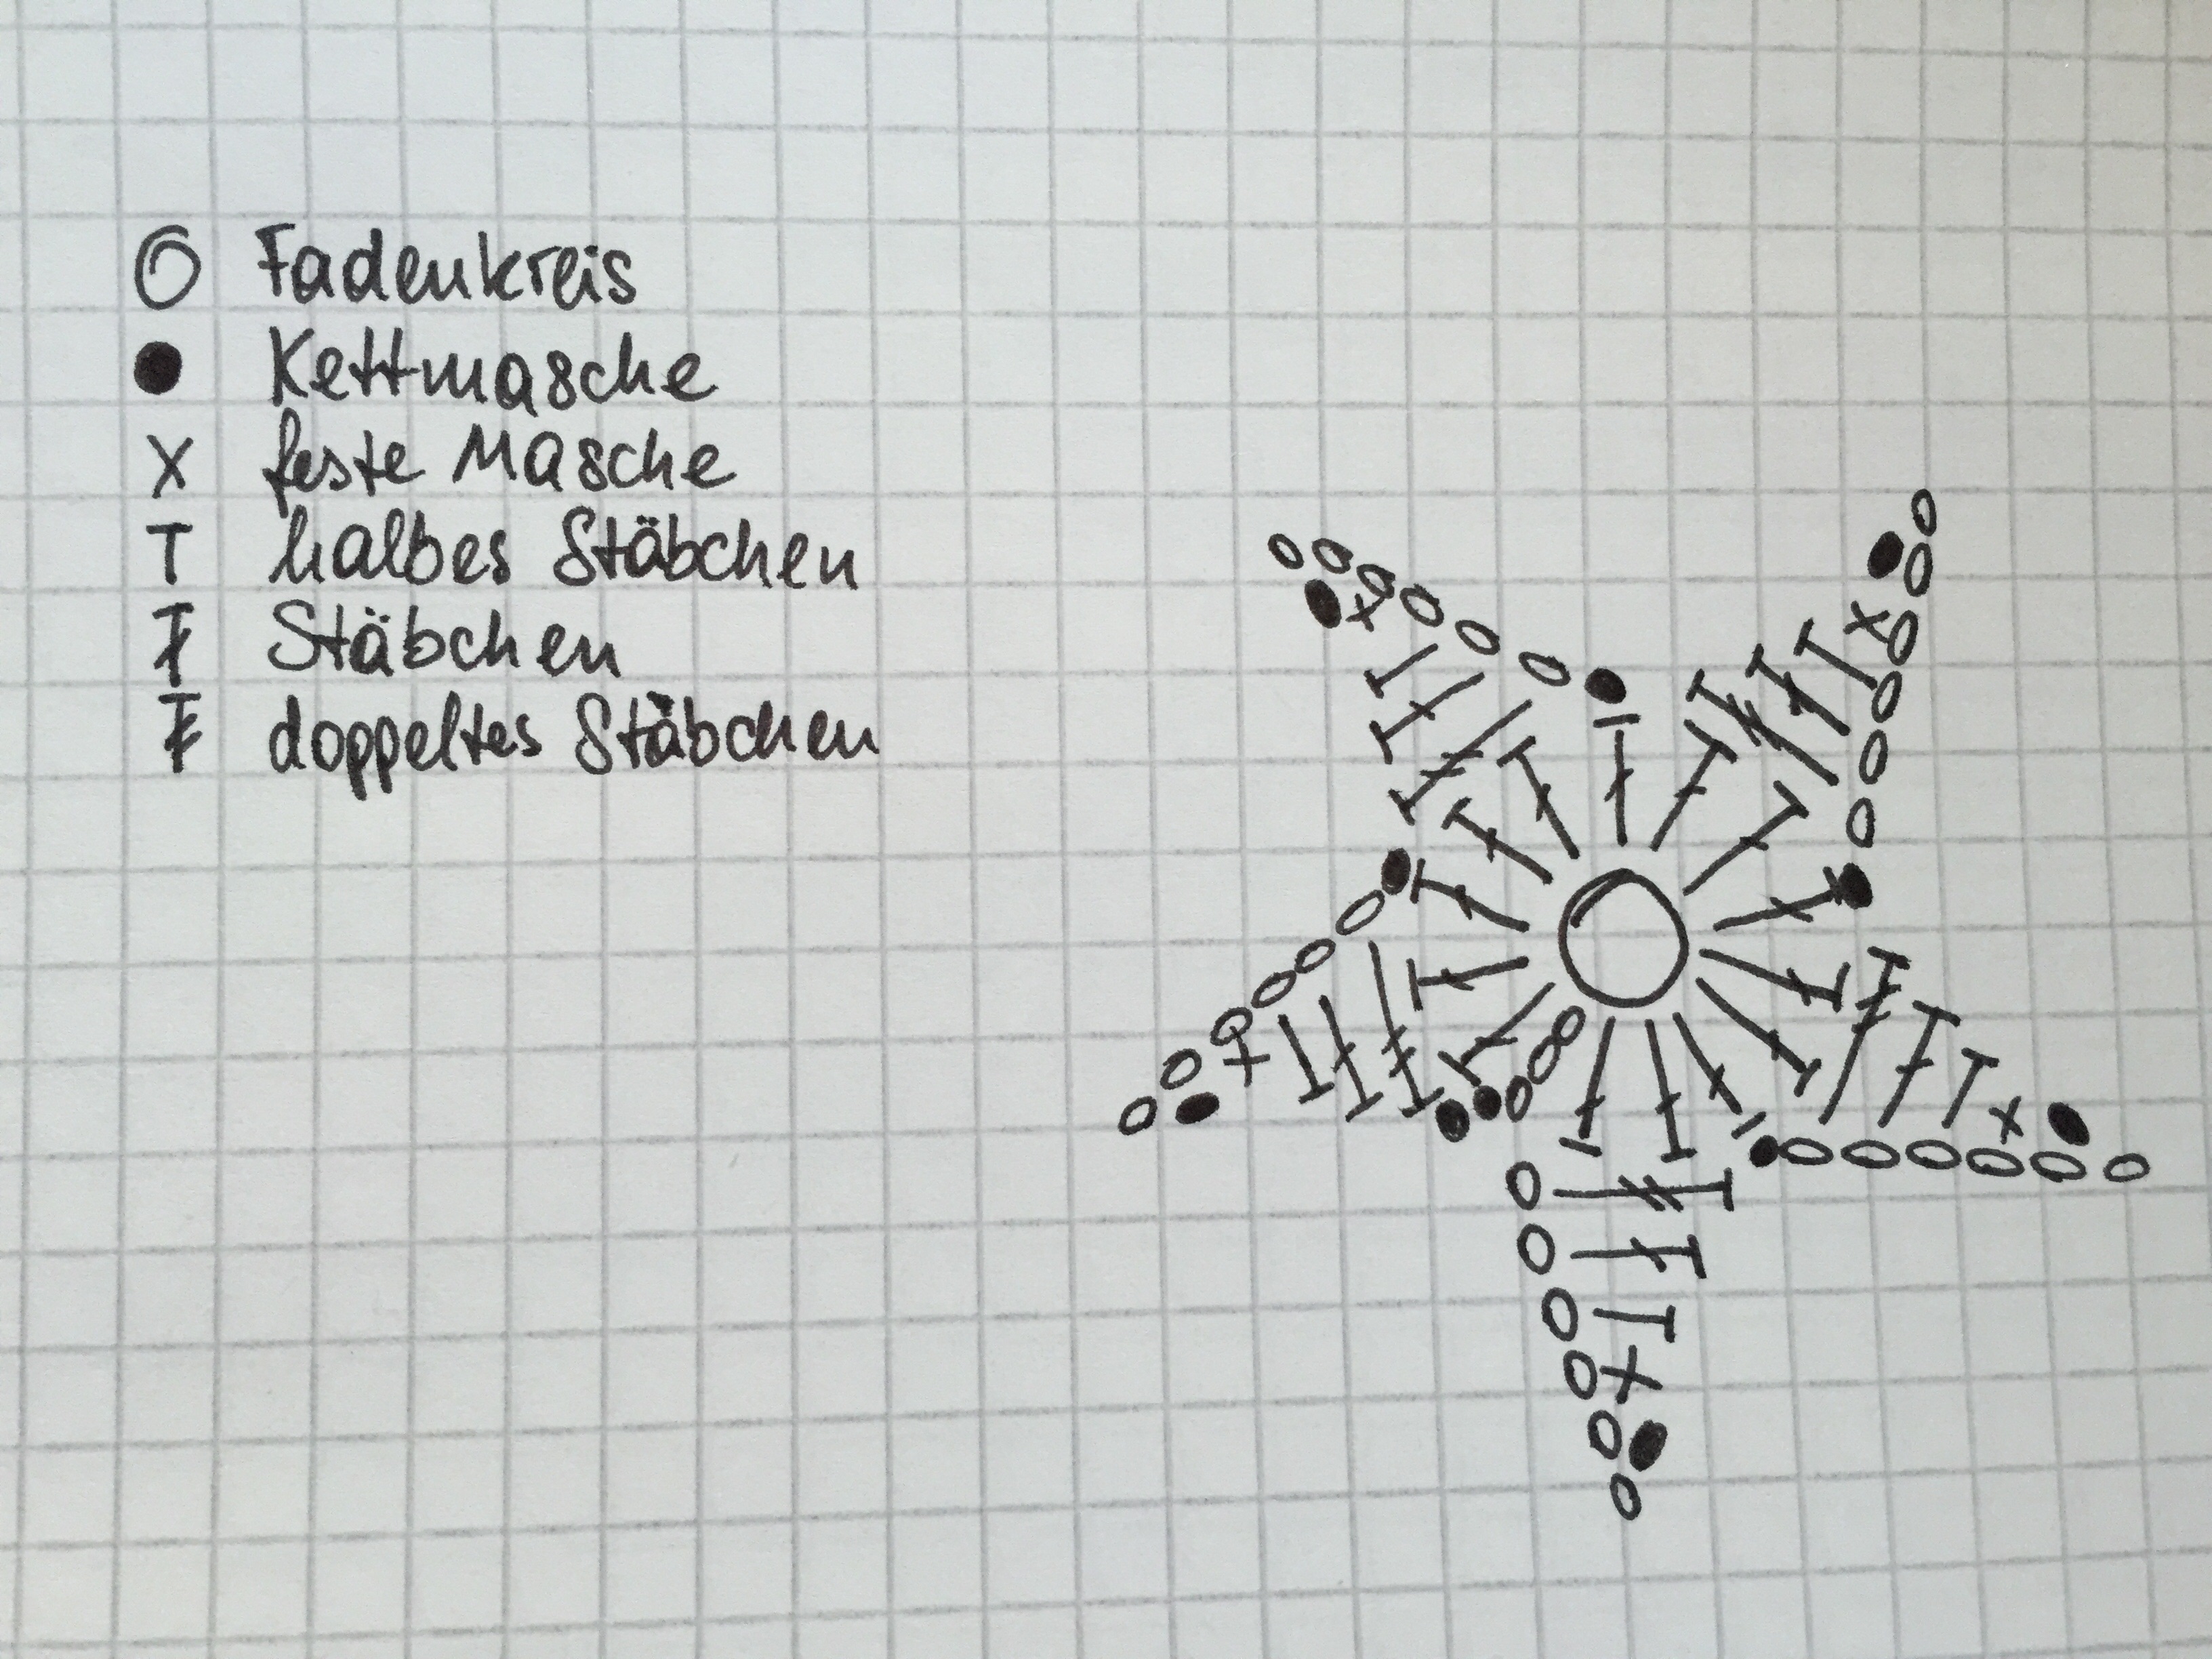 Fadenkreis
Kettmasche
feste Masche
halbes Stäbchen
Stäbchen
doppeltes Stäbchen